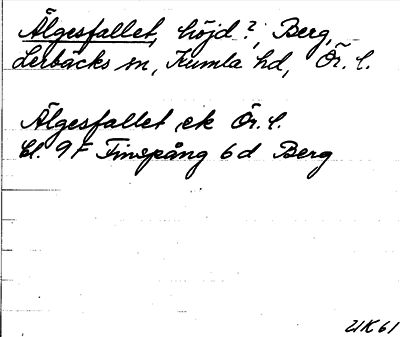 Älgesfallet, höjd?, Berg,
Lerbäcks sn, Kumla hd, Ör. l.
Älgesfallet ek Ör. l.
Bl. 9F Finspång 6d Berg
UK 61